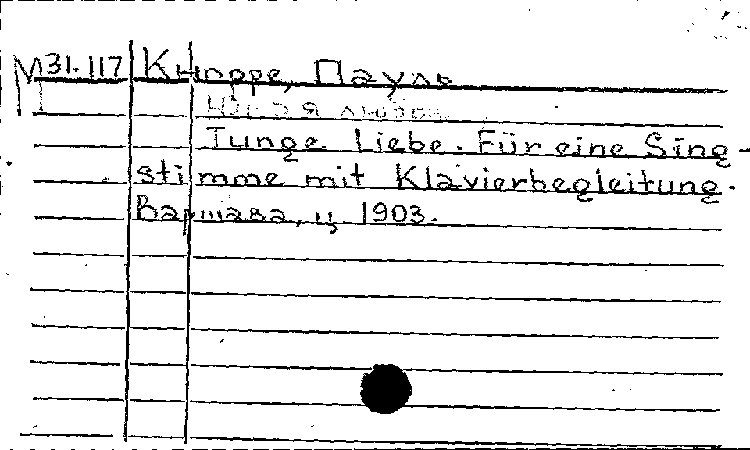 М31.117 Кнорре, Пауль
Junge Liebe. Für eine Sing-
stimme mit Klavierbegleitung.
Варшава, ц 1903.